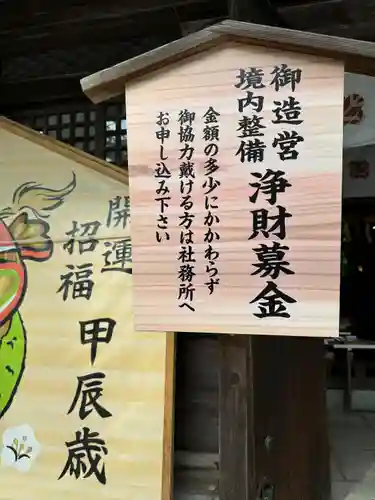 御造営
境内整備
浄財募金
金額の多少にかかわらず
御協力戴ける方は社務所へ
お申し込み下さい
開運
招福
甲辰歳